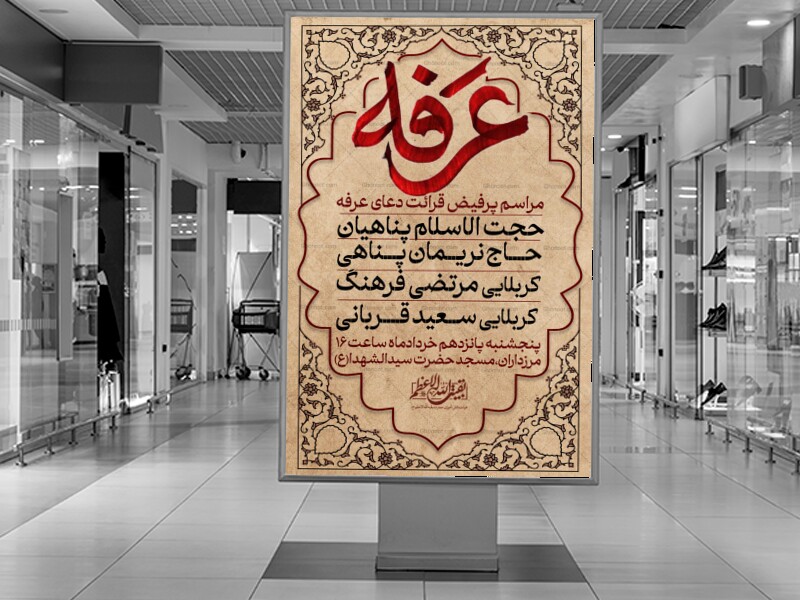 عرفه
مراسم پرفیض قرائت دعای عرفه
حجت الاسلام پناهیان
حاج نریمان پناهی
کربلایی مرتضی فرهنگ
کربلایی سعید قربانی
پنجشنبه پانزدهم خردادماه ساعت ۱۶
مرزداران،مسجد حضرت سیدالشهدا(ع)
بقیة الله الاعظم